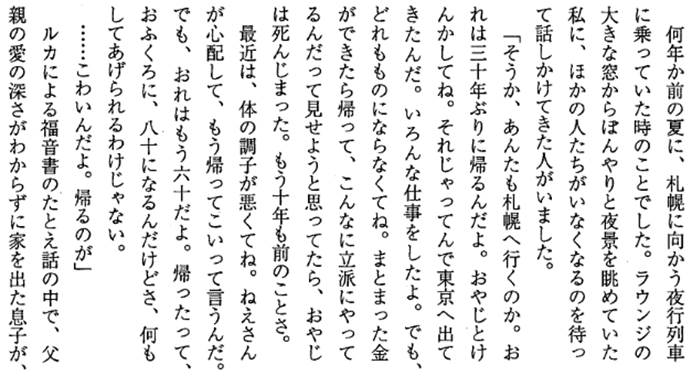 何年か前の夏に、札幌に向かう夜行列車
に乗っていた時のことでした。ラウンジの
大きな窓からぼんやりと夜景を眺めていた
私に、ほかの人たちがいなくなるのを待っ
て話しかけてきた人がいました。
「そうか、あんたも札幌へ行くのか。お
れは三十年ぶりに帰るんだよ。おやじとけ
んかしてね。それじゃってんで東京へ出て
きたんだ。いろんな仕事をしたよ。でも、
どれもものにならなくてね。まとまった金
ができたら帰って、こんなに立派にやって
るんだって見せようと思ってたら、おやじ
は死んじまった。もう十年も前のことさ。
最近は、体の調子が悪くてね。ねえさん
が心配して、もう帰ってこいって言うんだ。
でも、おれはもう六十だよ。帰ったって、
おふくろに、八十になるんだけどさ、何も
してあげられるわけじゃない。
……こわいんだよ。帰るのが」
ルカによる福音書のたとえ話の中で、父
親の愛の深さがわからずに家を出た息子が、